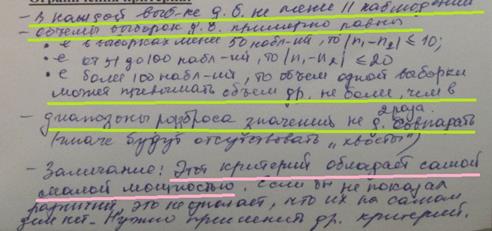 Ограничения критерия:
- В каждой выб-ке д.б. не менее 11 наблюдений
- Объемы выборок д.б. примерно равны:
• е в выборках менее 50 набл-ий, то |n₁-n₂| ≤ 10;
• от 51 до 100 набл-ий, то |n₁-n₂| ≤ 20
• е более 100 набл-ий, то объем одной выборки
может превышать объем др. не более, чем в
2 раза.
- диапазоны разброса значений не д. совпадать
(иначе будут отсутствовать "хвосты")
- Замечание: Этот критерий обладает самой
малой мощностью. Если он не показал
различий, это не означает, что их на самом
деле нет. Нужно применить др. критерий.